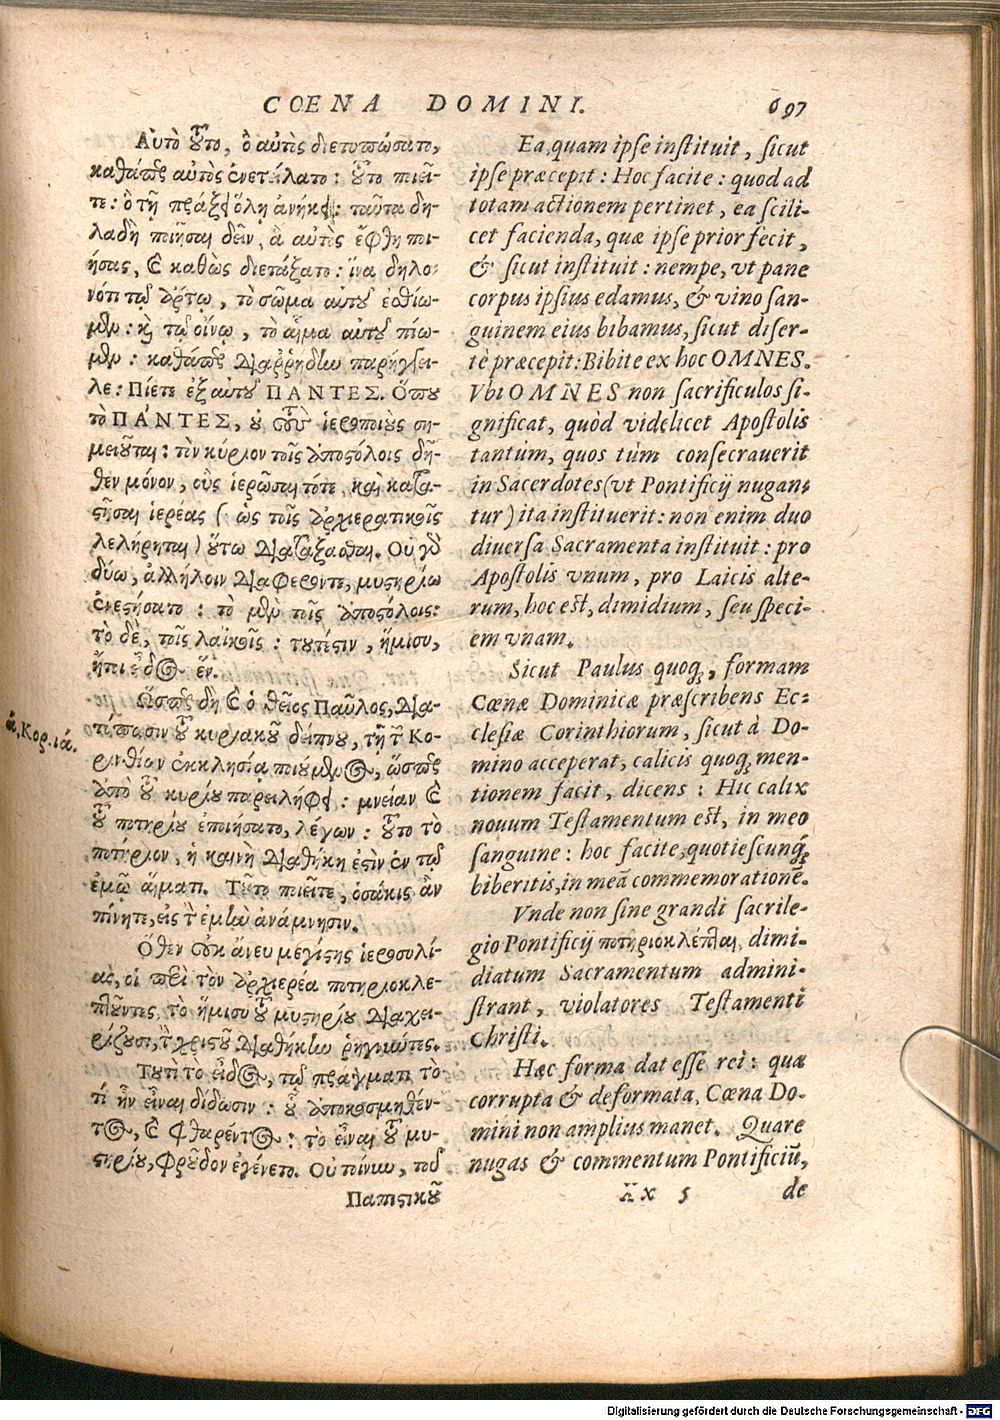 COENA DOMINI. 697
Αὐτὸ τοῦτο, ὃ αὐτὸς διετυπώσατο,
καθάπερ αὐτὸς ἐνετείλατο: τοῦτο ποιεῖ-
τε: ὃ τῇ πράξει ὅλῃ ἀνήκει: ταῦτα δη-
λαδὴ ποιῆσαι δεῖν, ἃ αὐτὸς ἔφθη ποι-
ήσας, καὶ καθὼς διετάξατο: ἵνα δηλο-
νότι τῷ ἄρτῳ, τὸ σῶμα αὐτοῦ ἐσθίω-
μεν: καὶ τῷ οἴνῳ, τὸ αἷμα αὐτοῦ πίω-
μεν: καθάπερ διαῤῥήδην παρήγγει-
λε: Πίετε ἐξ αὐτοῦ ΠΑΝΤΕΣ. Ὅπου
τὸ ΠΑΝΤΕΣ, οὐ τοὺς ἱεροποιοὺς ση-
μειοῦται: τὸν κύριον τοῖς ἀποστόλοις δῆ-
θεν μόνον, οὓς ἱερῶσαι τότε, καὶ κατα-
στῆσαι ἱερέας (ὡς τοῖς ἀρχιερατικοῖς
λελήρηται) οὕτω διατάξασθαι. Οὐ γὰρ
δύω, ἀλλήλοιν διαφέροντε, μυστηρίω
ἐνεστήσατο: τὸ μὲν τοῖς ἀποστόλοις:
τὸ δὲ, τοῖς λαϊκοῖς: τουτέστιν, ἥμισυ,
ἤτοι εἶδος ἕν.
Ὥσπερ δὴ καὶ ὁ θεῖος Παῦλος, δια-
τύπωσιν τοῦ κυριακοῦ δείπνου, τῇ τῶν Κο-
ρινθίων ἐκκλησίᾳ ποιούμενος, ὥσπερ
ἀπὸ τοῦ κυρίου παρειλήφει: μνείαν καὶ
τοῦ ποτηρίου ἐποιήσατο, λέγων: τοῦτο τὸ
ποτήριον, ἡ καινὴ διαθήκη ἐστὶν ἐν τῷ
ἐμῷ αἵματι. Τοῦτο ποιεῖτε, ὁσάκις ἂν
πίνητε, εἰς τὴν ἐμὴν ἀνάμνησιν.
Ὅθεν οὐκ ἄνευ μεγίστης ἱεροσυλί-
ας, οἱ περὶ τὸν ἀρχιερέα ποτηριοκλε-
πτοῦντες, τὸ ἥμισυ τοῦ μυστηρίου διαχει-
ρίζουσι, τῆς χριστοῦ διαθήκης
Τουτὶ τὸ εἶδος, τῷ πράγματι τὸ
τί ἦν εἶναι δίδωσιν: οὗ ἀποκοσμηθέν-
τος, καὶ φθαρέντος: τὸ εἶναι τοῦ μυ-
στηρίου, φροῦδον ἐγένετο. Οὐ τοίνυν, τοῦ
Παπιστικοῦ
α, Κορ. ια.
Ea, quam ipse instituit, sicut
ipse præcepit: Hoc facite: quod ad
totam actionem pertinet, ea scili-
cet facienda, quæ ipse prior fecit,
& sicut instituit: nempe, vt pane
corpus ipsius edamus, & vino san-
guinem eius bibamus, sicut diser-
tè præcepit: Bibite ex hoc OMNES.
Vbi OMNES non sacrificulos si-
gnificat, quòd videlicet Apostolis
tantum, quos tùm consecrauerit
in Sacerdotes (vt Pontificij nugan-
tur) ita instituerit: non enim duo
diuersa Sacramenta instituit: pro
Apostolis vnum, pro Laicis alte-
rum, hoc est, dimidium, seu speci-
em vnam.
Sicut Paulus quoq;, formam
Cœnæ Dominicæ præscribens Ec-
clesiæ Corinthiorum, sicut à Do-
mino acceperat, calicis quoq; men-
tionem facit, dicens: Hic calix
nouum Testamentum est, in meo
sanguine: hoc facite, quotiescunq;
biberitis, in meã commemorationẽ.
Vnde non sine grandi sacrile-
gio Pontificij ποτηριοκλέπται, dimi-
diatum Sacramentum admini-
strant, violatores Testamenti
Christi.
Hæc forma dat esse rei: quæ
corrupta & deformata, Cœna Do-
mini non amplius manet. Quare
nugas & commentum Pontificiũ,
Xx 5 de
Digitalisierung gefördert durch die Deutsche Forschungsgemeinschaft - DFG